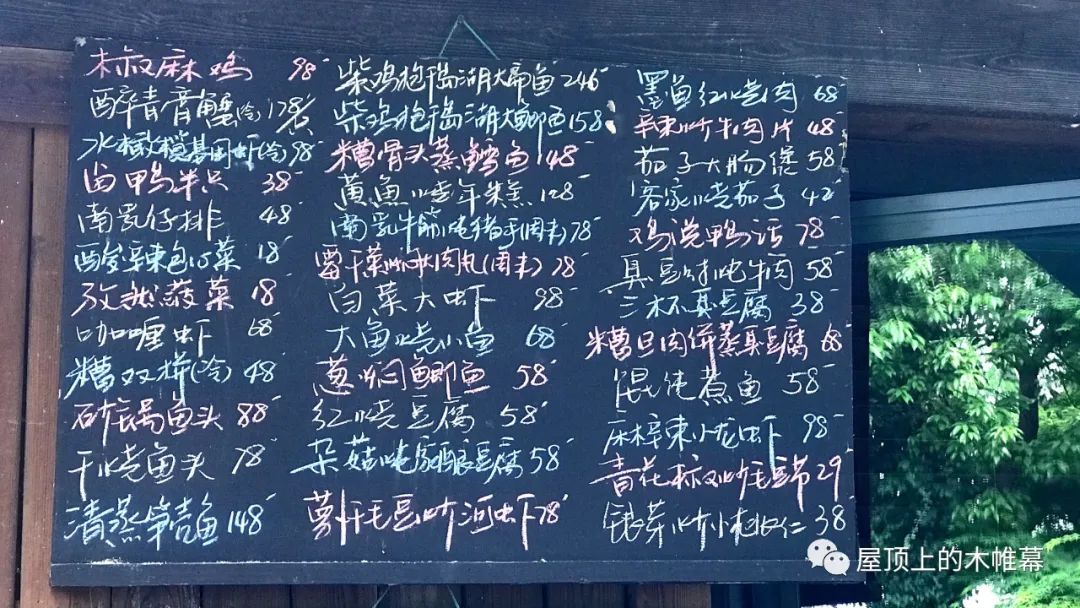 椒麻鸡 98
醉青膏蟹(冷)178/只
水橄榄基围虾(冷)98
卤鸭半只 38
南乳仔排 48
酸辣包心菜 18
孜然菠菜 18
咖喱虾 68
糟双拼(冷) 48
砂锅鱼头 88
干烧鱼头 78
清蒸笋壳鱼 148
柴鸡抱千岛湖大扁鱼 246
柴鸡抱千岛湖大鲫鱼 158
糟骨头蒸鲳鱼 48
黄鱼烧年糕 128
南乳牛筋炖猪手(周末) 78
霉干菜 肉丸(周末) 78
白菜大虾 98
大鱼烧小鱼 68
葱焖鲫鱼 58
红烧豆腐 58
菇炖酿豆腐 58
萝卜干毛豆炒河虾 78
墨鱼红烧肉 68
辣炒牛肉片 48
茄子大肠煲 58
客家烧茄子 42
鸡说鸭话 78
臭豆 炖牛肉 58
三杯臭豆腐 38
糟旦肉饼蒸臭豆腐 68
馄饨煮鱼 58
麻辣小龙虾 98
青花椒 炒毛豆节 29
银芽炒小 仁 38
屋顶上的木帷幕